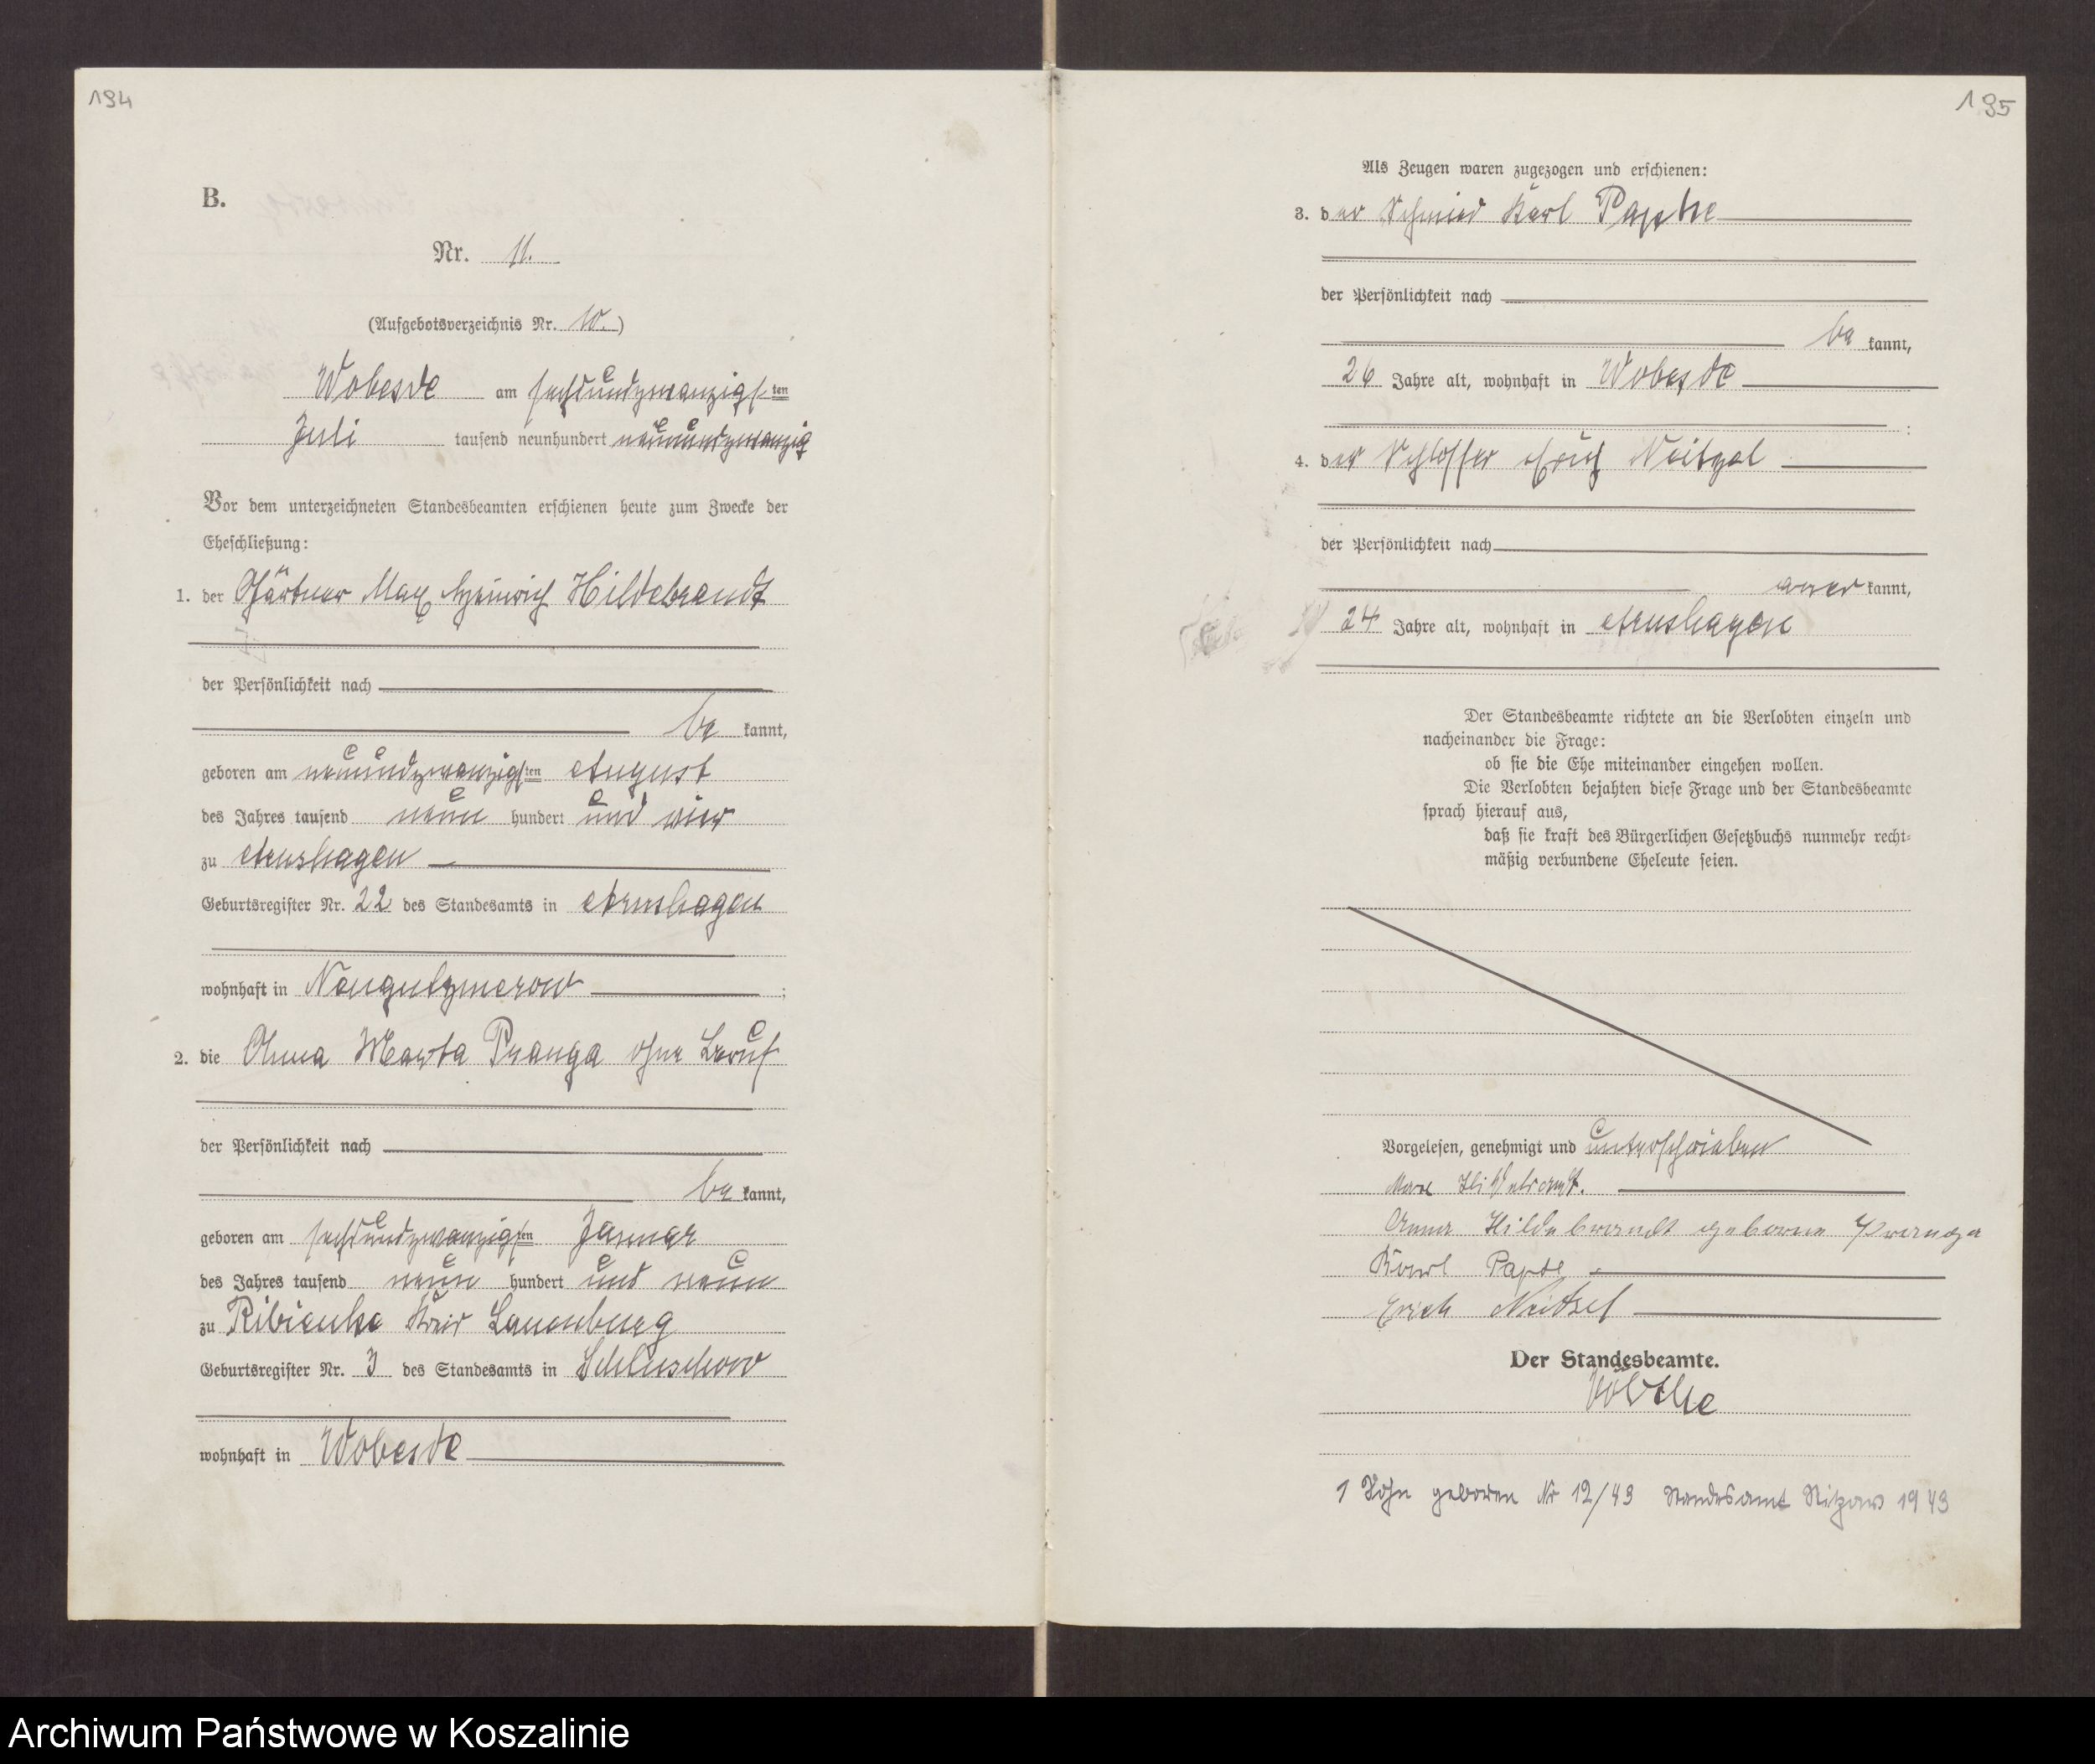 194
B.
Nr. 11.
(Aufgebotsverzeichnis Nr. 10.)
Wobesde am sechsundzwanzigsten
Juli tausend neunhundert neunundzwanzig
Vor dem unterzeichneten Standesbeamten erschienen heute zum Zwecke der
Eheschließung:
1. der Gärtner Max Heinrich Hildebrandt
der Persönlichkeit nach
be kannt,
geboren am neunundzwanzigsten August
des Jahres tausend neun hundert und vier
zu Arnshagen
Geburtsregister Nr. 22 des Standesamts in Arnshagen
wohnhaft in Neugutzmerow ;
2. die Anna Marta Pranga ohne Beruf
der Persönlichkeit nach
be kannt,
geboren am sechsundzwanzigsten Januar
des Jahres tausend neun hundert und neun
zu Ribienke Kreis Lauenburg
Geburtsregister Nr. 3 des Standesamts in Schluschow
wohnhaft in Wobesde
195
Als Zeugen waren zugezogen und erschienen:
3. der Schmied Karl Papke
der Persönlichkeit nach
be kannt,
26 Jahre alt, wohnhaft in Wobesde
:
4. der Schlosser Erich Neitzel
der Persönlichkeit nach
aner kannt,
24 Jahre alt, wohnhaft in Arnshagen
Der Standesbeamte richtete an die Verlobten einzeln und
nacheinander die Frage:
ob sie die Ehe miteinander eingehen wollen.
Die Verlobten bejahten diese Frage und der Standesbeamte
sprach hierauf aus,
daß sie kraft des Bürgerlichen Gesetzbuchs nunmehr recht-
mäßig verbundene Eheleute seien.
Vorgelesen, genehmigt und unterschrieben
Max Hildebrandt.
Anna Hildebrandt geborene Pranga
Karl Papke
Erich Neitzel
Der Standesbeamte.
1 Sohn geboren Nr 12/43 Standesamt Ritzow 1943
Archiwum Państwowe w Koszalinie